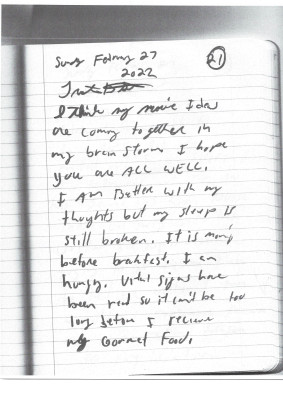 Sunday February 27 21
2022
I think my movie Idea
are coming together in
my brain storm I hope
you are ALL WELL.
I AM Better with my
thoughts but my sleep is
still broken. It is morning
before brakfast. I am
hungry. Vital signs have
been read so it can't be too
long before I recieve
my Gourmet Food.